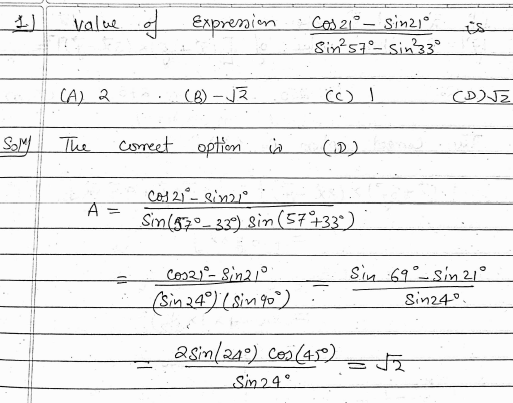 1) Value of Expression (cos21° - sin21°)/(sin²57° - sin²33°) is
(A) 2 . (B) -√2 (C) 1 (D) √2
Solⁿ/ The correct option is (D)
A = (cos21° - sin21°)/(sin(57° - 33°) sin(57° + 33°))
= (cos21° - sin21°)/((sin24°)(sin90°)) = (sin 69° - sin 21°)/(sin24°)
= (2sin(24°) cos(45°))/(sin24°) = √2